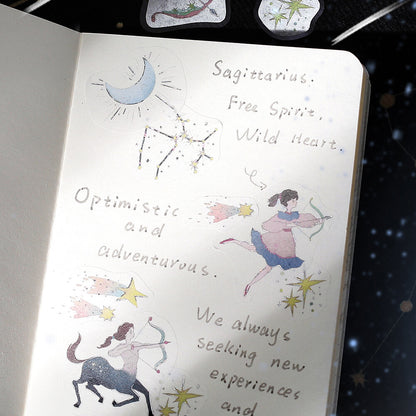 Sagittarius.
Free Spirit.
Wild Heart.
Optimistic
and
adventurous.
We always
seeking new
experiences
and